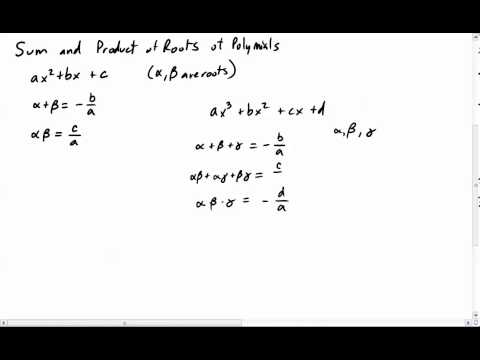 Sum and Product of Roots of Polymials
ax² + bx + c
(α, β are roots)
α + β = - b/a
αβ = c/a
ax³ + bx² + cx + d
α, β, γ
α + β + γ = - b/a
αβ + αγ + βγ = c/
α β · γ = - d/a